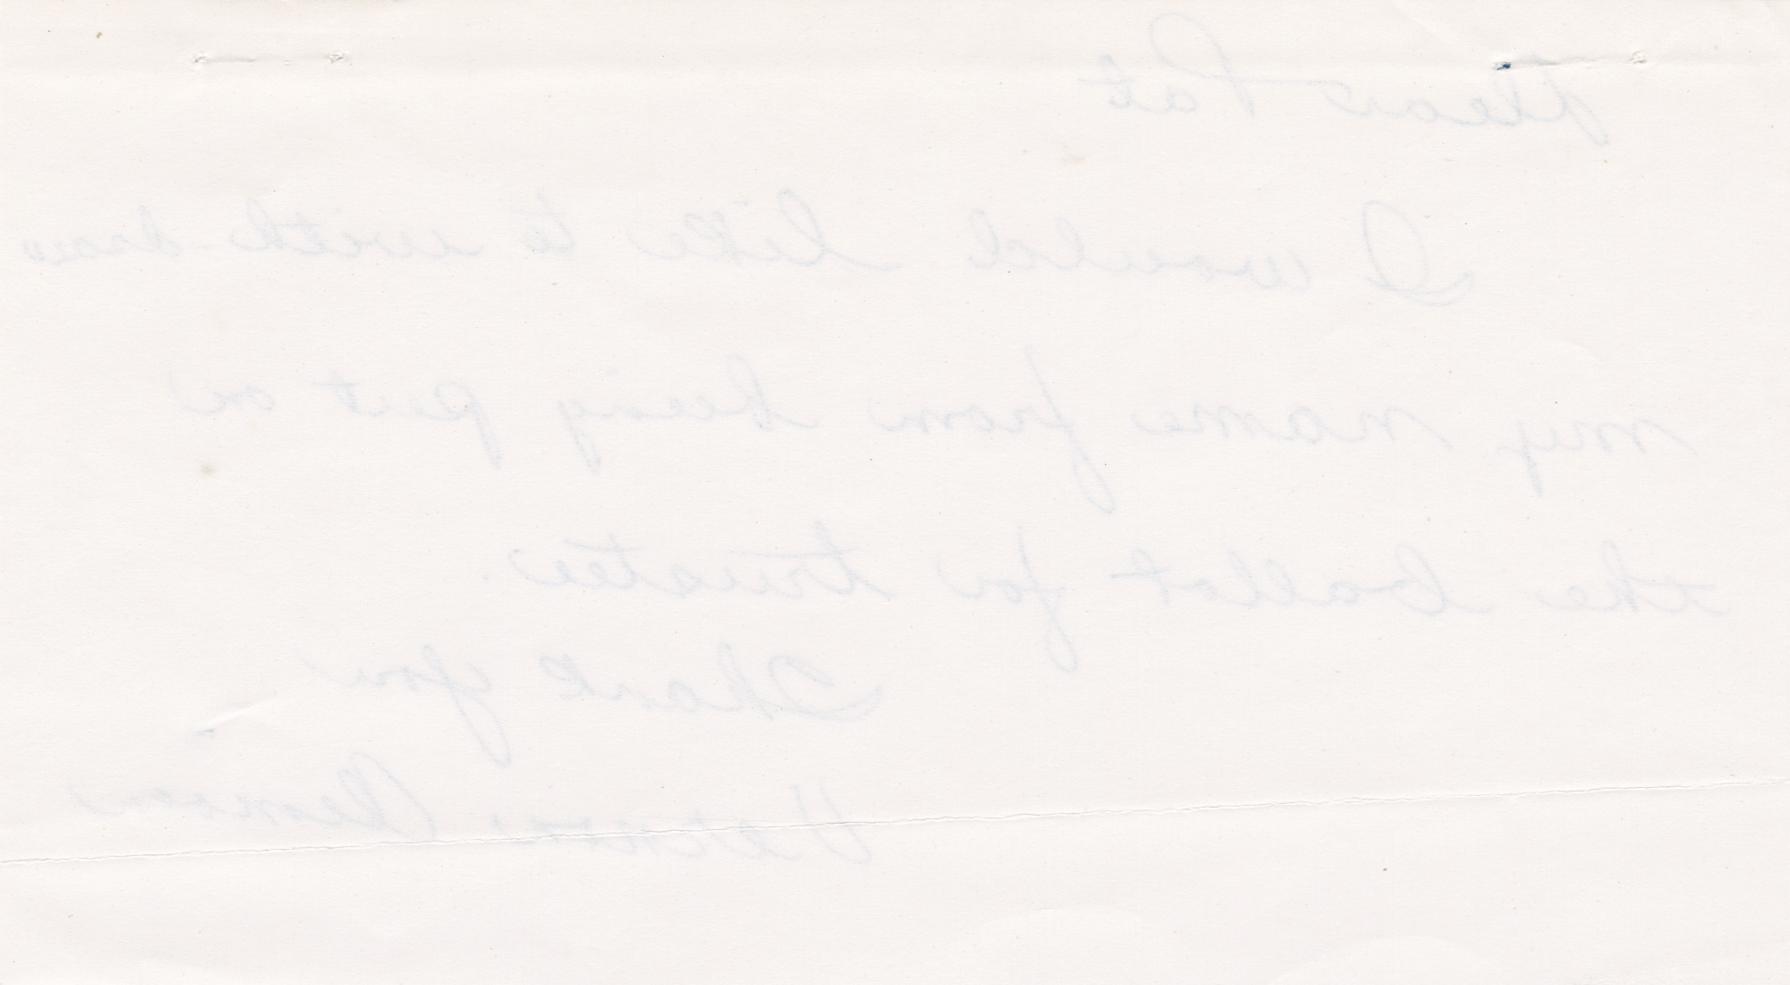 Dear Pat
I would like to with draw
my name from being put on
the ballot for trustee.
Thank you